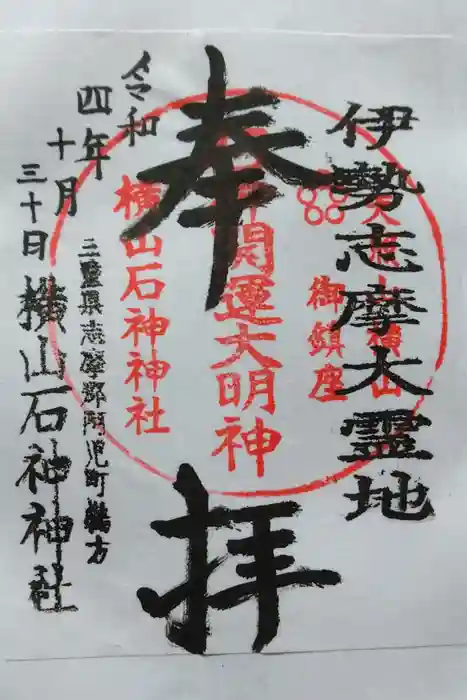 伊勢志摩大霊地
横山
御鎮座
奉拝
開運大明神
横山石神神社
令和四年十月三十日
三重県志摩郡阿児町鵜方
横山石神神社